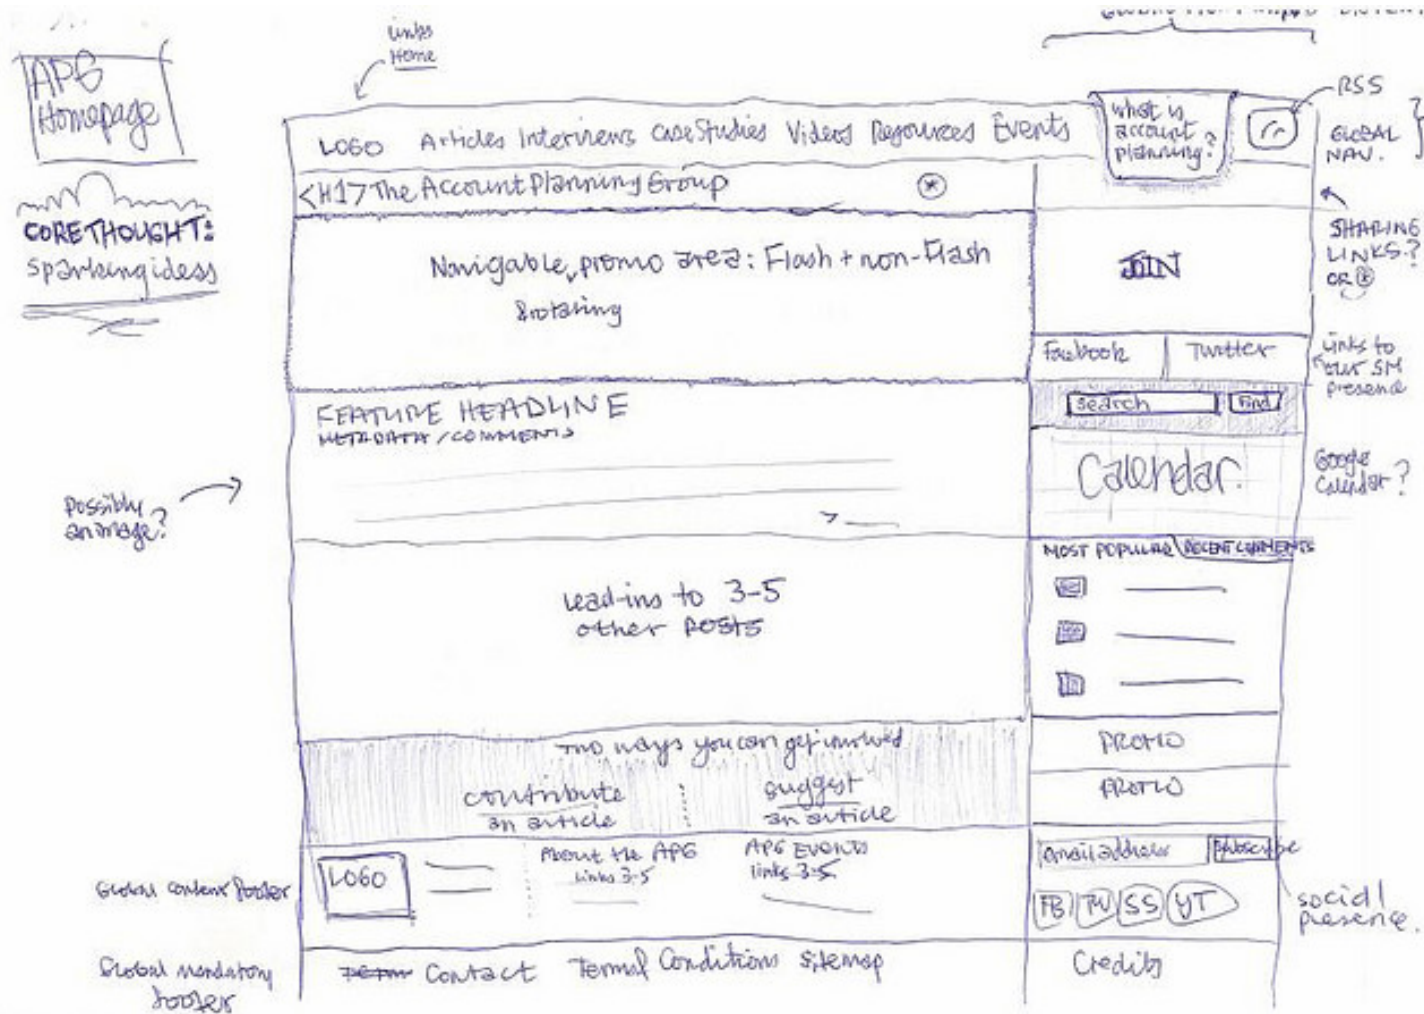 APG
Homepage
CORE THOUGHT:
Sparking ideas
Links
Home
RSS
GLOBAL
NAV.
LOGO Articles Interviews Case Studies Videos Resources Events
What is
account
planning?
<H1> The Account Planning Group
SHARING
LINKS?
OR
Navigable, promo area: Flash + non-Flash
& rotating
JOIN
Facebook Twitter
Links to
our SM
presence
Search Find
FEATURE HEADLINE
METADATA / COMMENTS
Calendar.
Google
Calendar?
Possibly
an image?
MOST POPULAR RECENT COMMENTS
Lead-ins to 3-5
other posts
Two ways you can get involved
contribute
an article
suggest
an article
PROMO
PROMO
Global content footer
LOGO
About the APG
links 3-5
APG EVENTS
links 3-5
email address Subscribe
FB TW SS YT
social
presence.
Global mandatory
footer
Contact Terms Conditions Sitemap
Credits